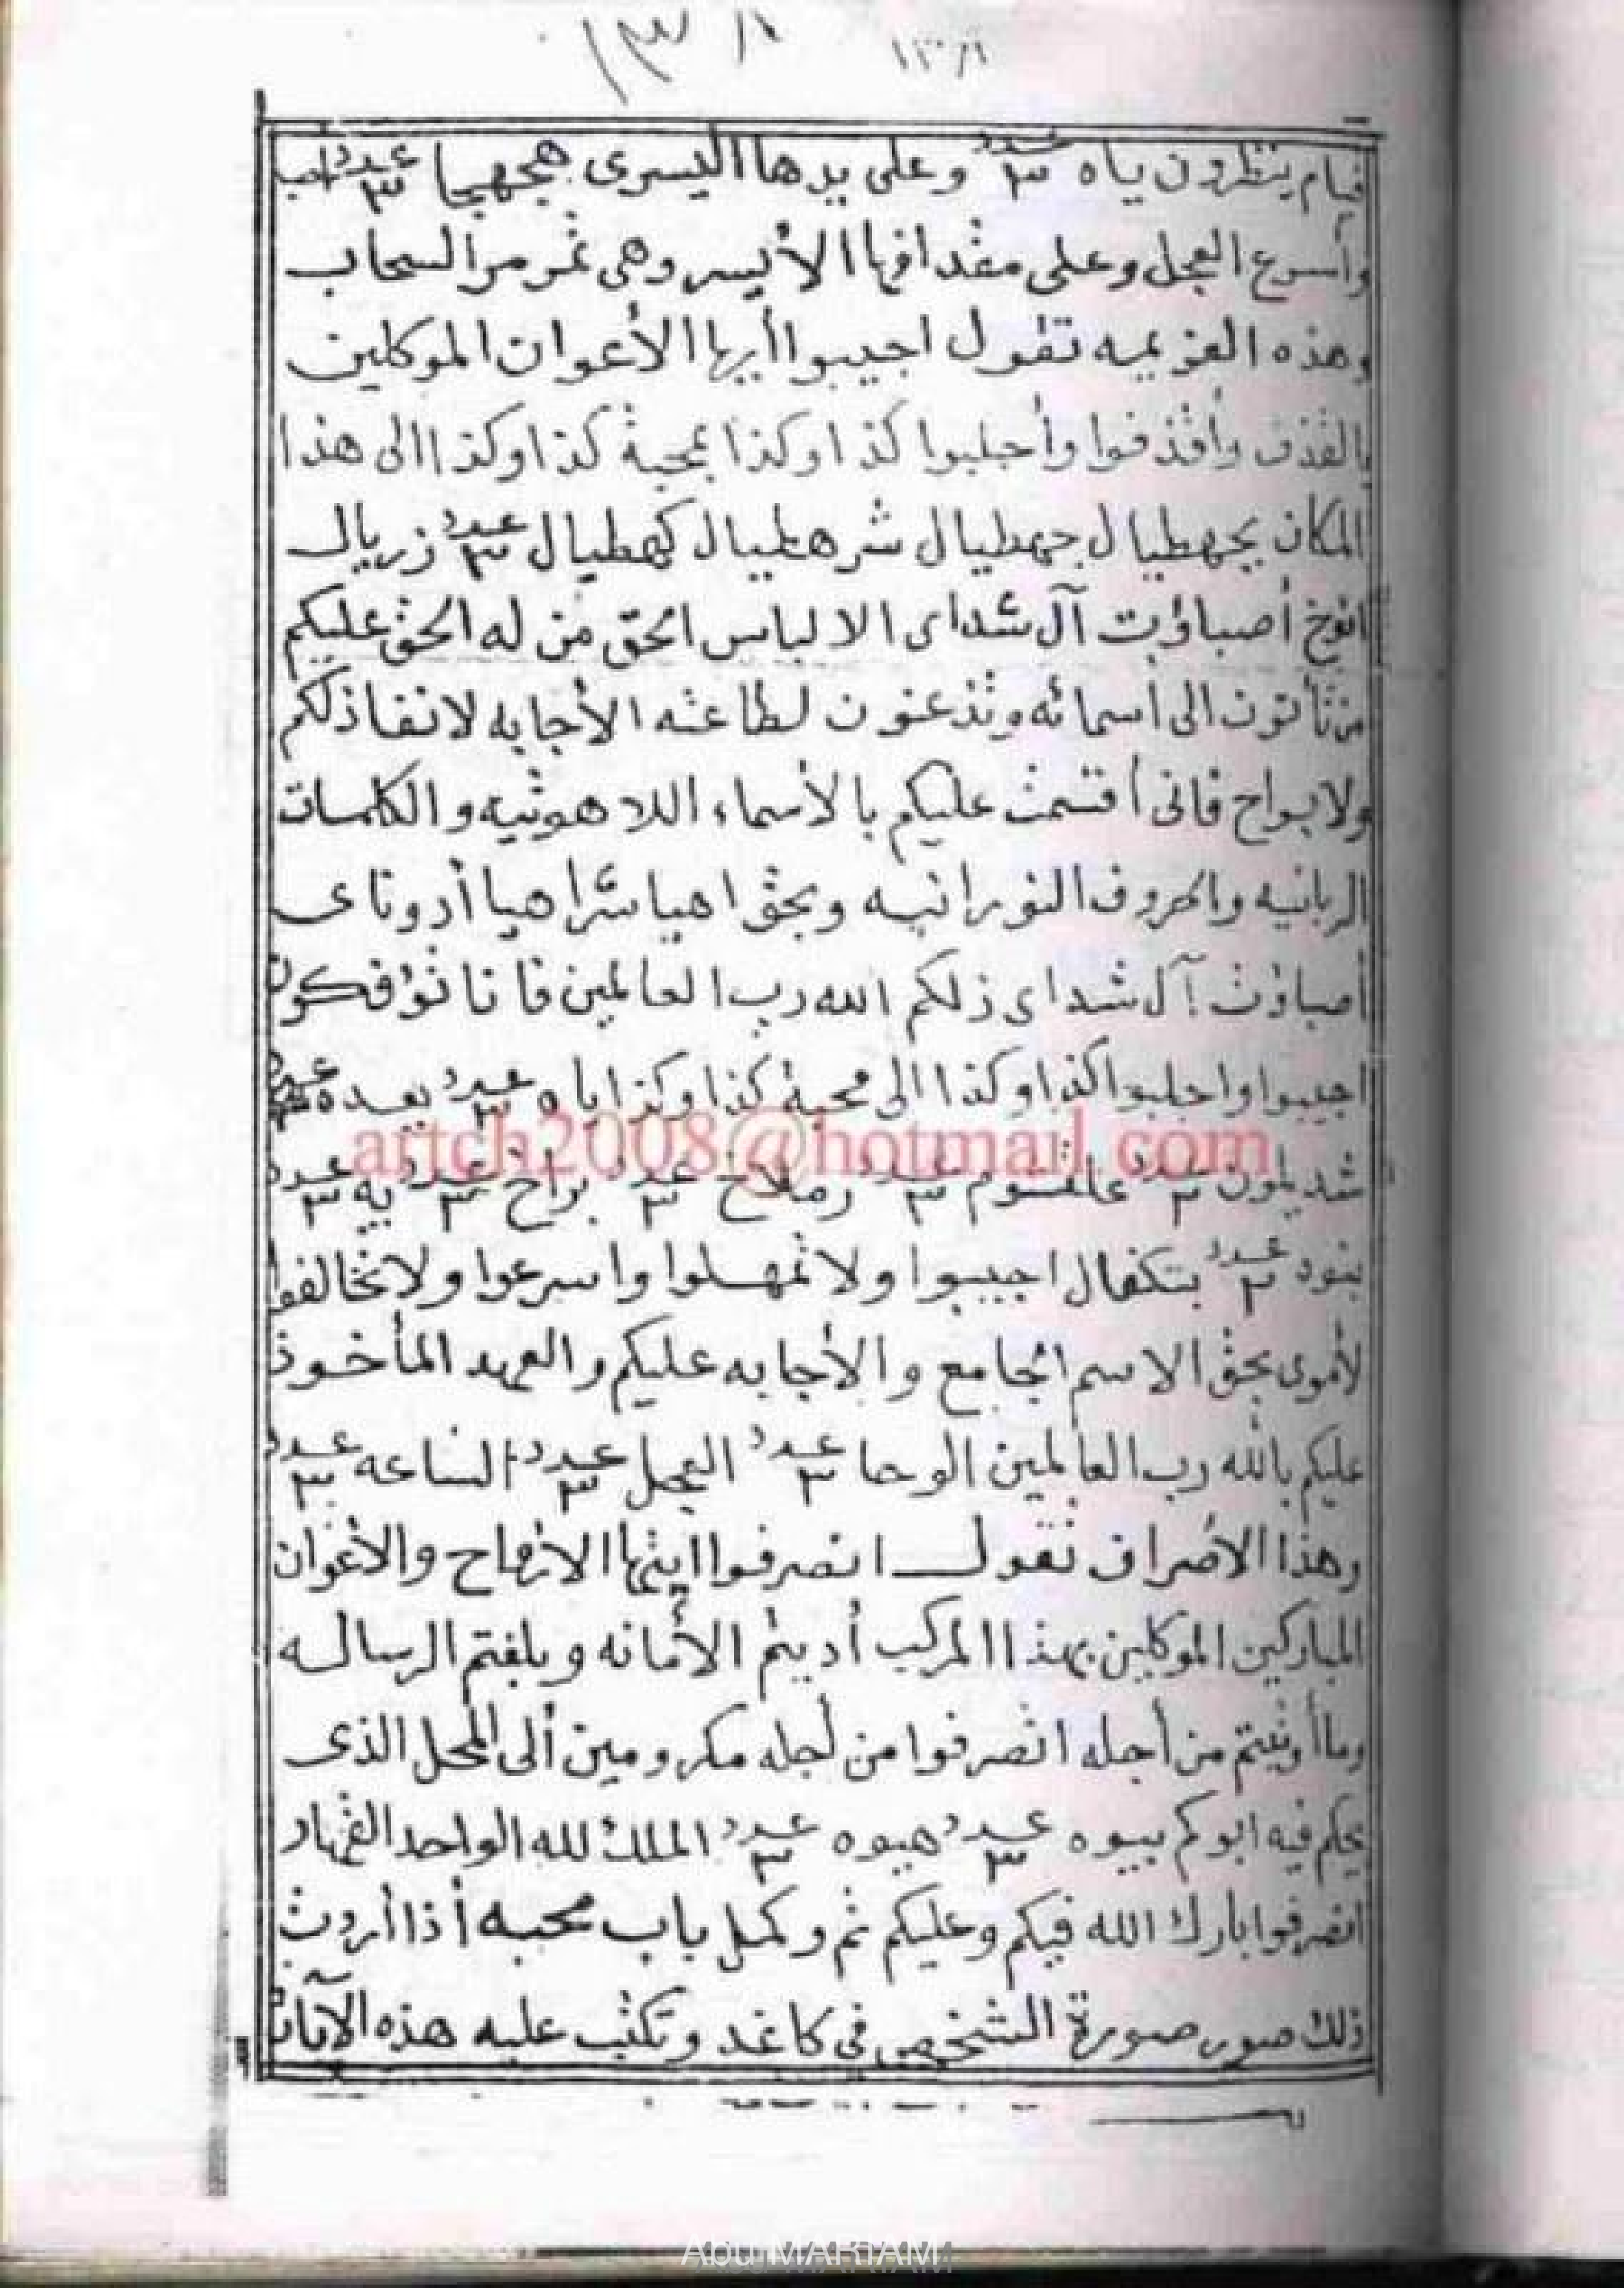 ١٣٨١
قيام ينظرون ياه عدد ٣ وعلى يدها اليسرى هجهجا عدد ٣
وأسرع العجل وعلى مقدافها الأيسر وهى تمر مر السحاب
وهذه العزيمه تقول اجيبوا أيها الأعوان الموكلين
بالقذف وأقذفوا وأجلبوا كذا وكذا بمحبة كذا وكذا الى هذا
المكان بجهطيال جهطيال شرهطيال كهطيال عدد ٣ زريال
انوخ أصباؤت آل شداى الا لباس الحق من له الحق عليكم
من تأتون الى أسمائه وتذعنون لطاعته الأجابه لا نفاذ لكم
ولا براح فانى أقسمت عليكم بالأسماء اللاهوتيه والكلمات
الربانيه والحروف النورانيه وبحق اهيا شراهيا أدوناى
أصباؤت آل شداى ذلكم الله رب العالمين فانا تؤفكون
اجيبوا واجلبوا كذا وكذا الى محبة كذا وكذا ياه عدد ٣ بعده عدد ٣
artch2008@hotmail.com
علقسوم عدد ٣ عدد ٣ براخ عدد ٣ يه عدد ٣
عدد ٣ بتكفال اجيبوا ولا تمهلوا واسرعوا ولا تخالفوا
لأموى بحق الاسم الجامع والأجابه عليكم والعهد المأخوذ
عليكم بالله رب العالمين الوحا عدد ٣ العجل عدد ٣ الساعه عدد ٣
وهذا الأصراف تقول انصرفوا ايتها الأرواح والأعوان
المباركين الموكلين بهذا المركب أديتم الأمانه وبلغتم الرساله
وما أوتيتم من أجله انصرفوا من أجله مكرومين ألى المحل الذى
يحكم فيه ابوكم بيوه عدد ٣ هيوه عدد ٣ الملك لله الواحد القهار
انصرفوا بارك الله فيكم وعليكم تم وكمل باب محبه أذا أردت
ذلك صور صورة الشخص فى كاغد وتكتب عليه هذه الآيات
Abu MARIAM